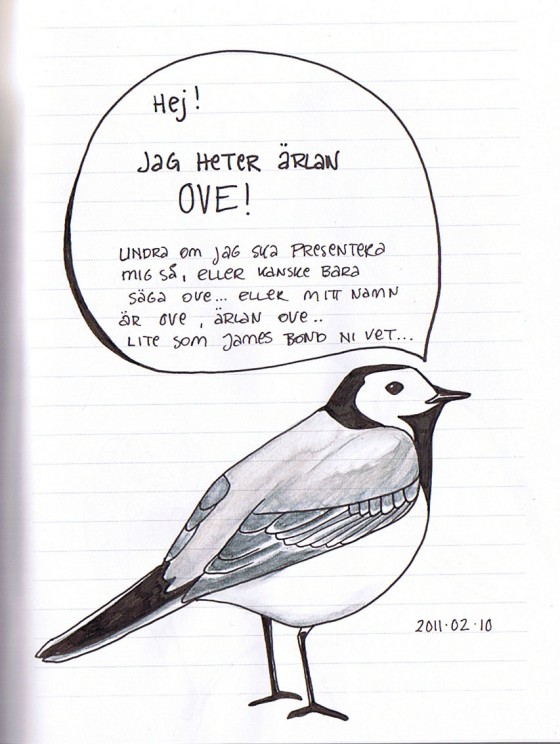 Hej!
JAG HETER ÄRLAN
OVE!
UNDRA OM JAG SKA PRESENTERA
MIG SÅ, ELLER KANSKE BARA
SÄGA OVE... ELLER MITT NAMN
ÄR OVE, ÄRLAN OVE..
LITE SOM JAMES BOND NI VET...
2011·02·10